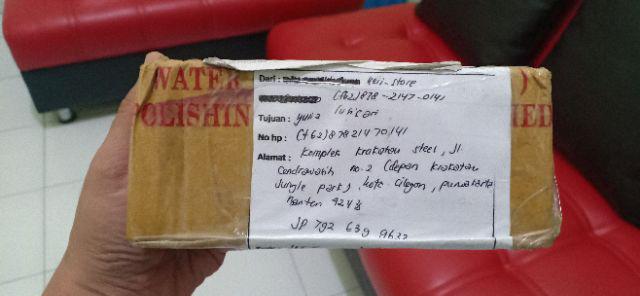 WATER
POLISHIN
IED
Dari : Keii-store
(+62)878-2147-0141
Tujuan : yulia lutticari
No hp : (+62)87821470141
Alamat : Komplek krakatau steel, Jl
Cendrawasih no-2 (depan krakatau
Jungle park), kota cilegon, purwakarta
Banten 4243
JP 792 639